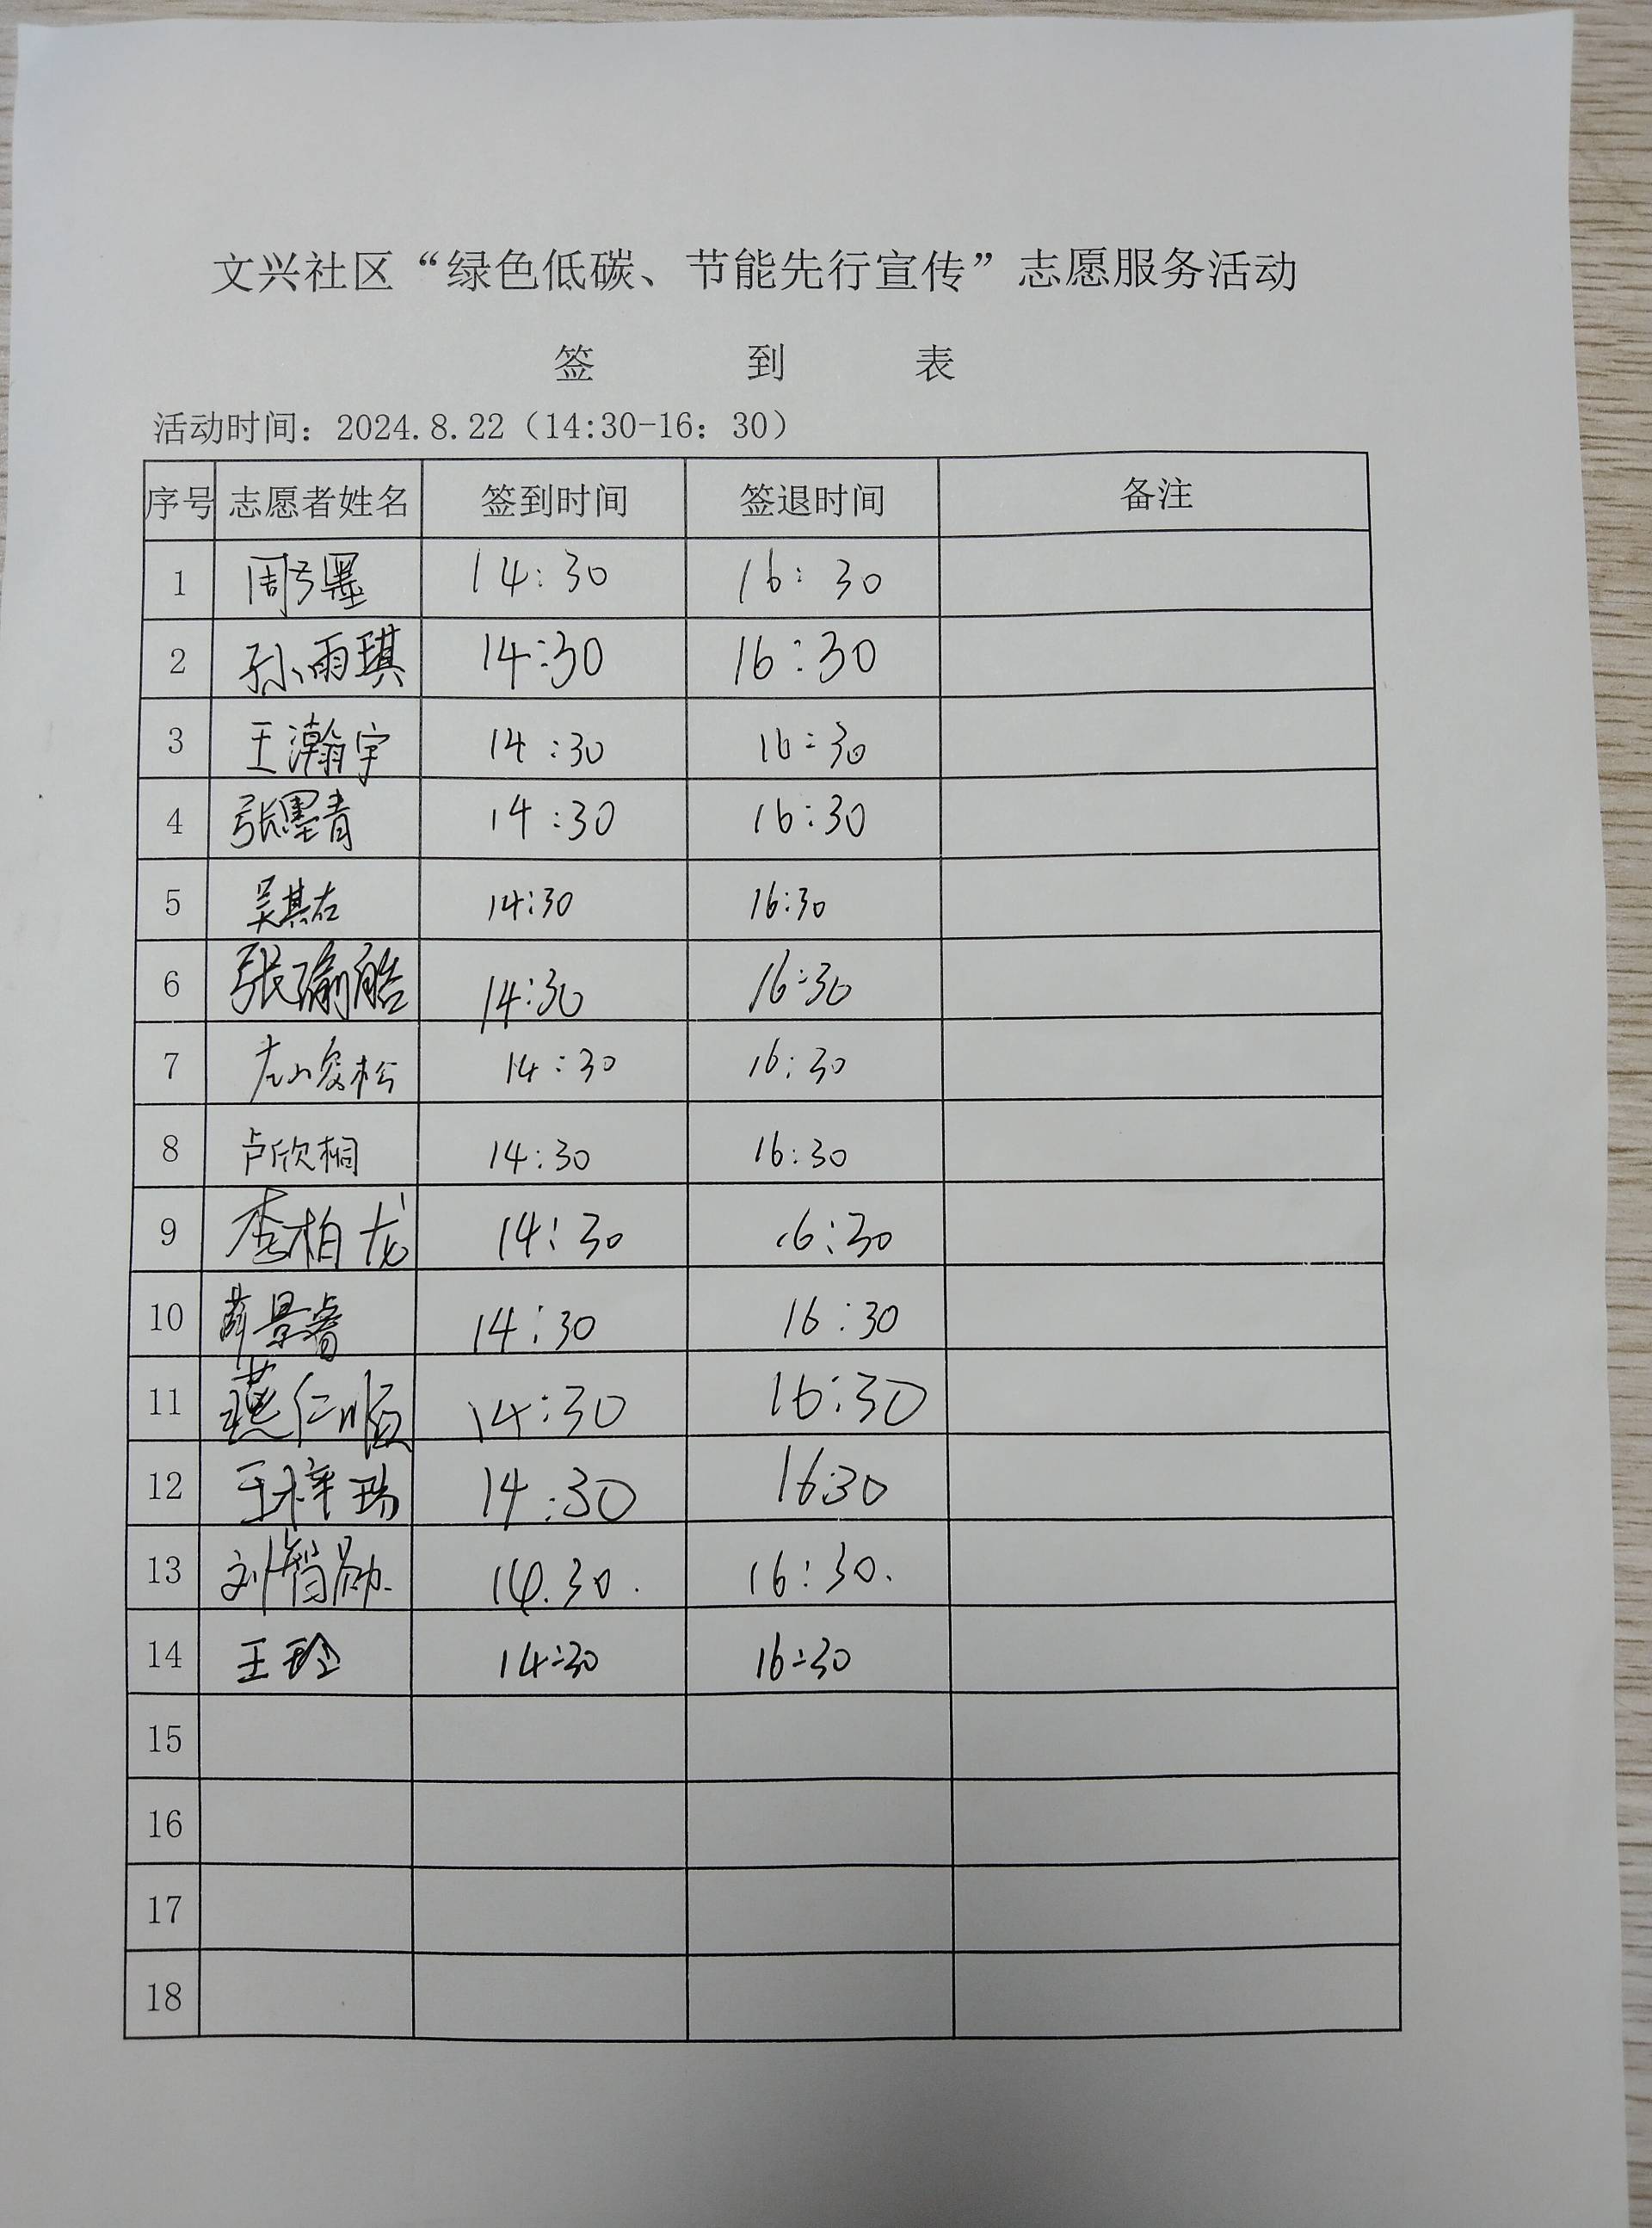 文兴社区“绿色低碳、节能先行宣传”志愿服务活动
签 到 表
活动时间：2024.8.22（14:30-16：30）
序号 志愿者姓名 签到时间 签退时间 备注
1 周子墨 14:30 16:30
2 孙雨琪 14:30 16:30
3 王瀚宇 14:30 16:30
4 张墨青 14:30 16:30
5 吴其右 14:30 16:30
6 张瑜皓 14:30 16:30
7 14:30 16:30
8 卢欣桐 14:30 16:30
9 李柏龙 14:30 16:30
10 薛景睿 14:30 16:30
11 燕仁顺 14:30 16:30
12 王梓瑞 14:30 1630
13 刘智勋. 14.30. 16:30.
14 王玲 14:30 16:30
15
16
17
18